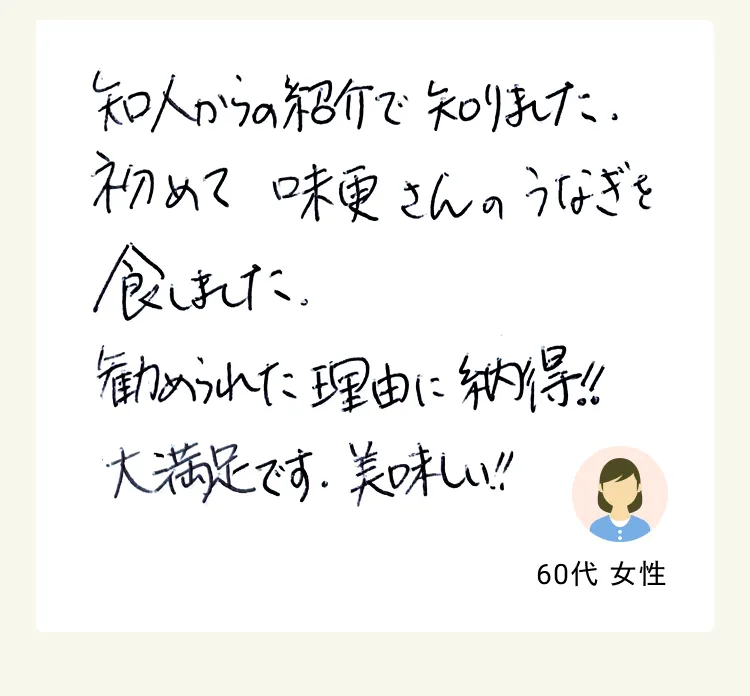 知人からの紹介で知りました.
初めて 味更さんのうなぎを
食しました.
勧められた理由に納得!!
大満足です. 美味しい!!
60代 女性